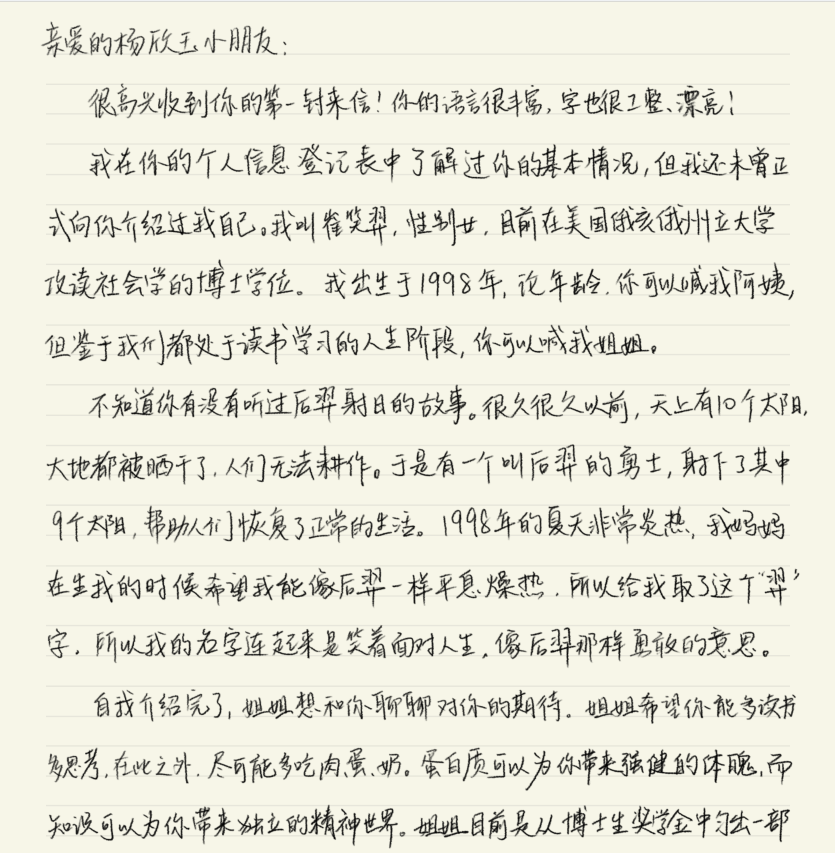 亲爱的杨欣玉小朋友：
很高兴收到你的第一封来信！你的语言很丰富，字也很工整、漂亮！
我在你的个人信息登记表中了解过你的基本情况，但我还未曾正
式向你介绍过我自己。我叫崔笑羿，性别女，目前在美国俄亥俄州立大学
攻读社会学的博士学位。我出生于1998年，论年龄，你可以喊我阿姨，
但鉴于我们都处于读书学习的人生阶段，你可以喊我姐姐。
不知道你有没有听过后羿射日的故事。很久很久以前，天上有10个太阳，
大地都被晒干了，人们无法耕作。于是有一个叫后羿的勇士，射下了其中
9个太阳，帮助人们恢复了正常的生活。1998年的夏天非常炎热，我妈妈
在生我的时候希望我能像后羿一样平息燥热，所以给我取了这个“羿”
字，所以我的名字连起来是笑着面对人生，像后羿那样勇敢的意思。
自我介绍完了，姐姐想和你聊聊对你的期待。姐姐希望你能多读书
多思考，在此之外，尽可能多吃肉、蛋、奶。蛋白质可以为你带来强健的体魄，而
知识可以为你带来独立的精神世界。姐姐目前是从博士生奖学金中匀出一部